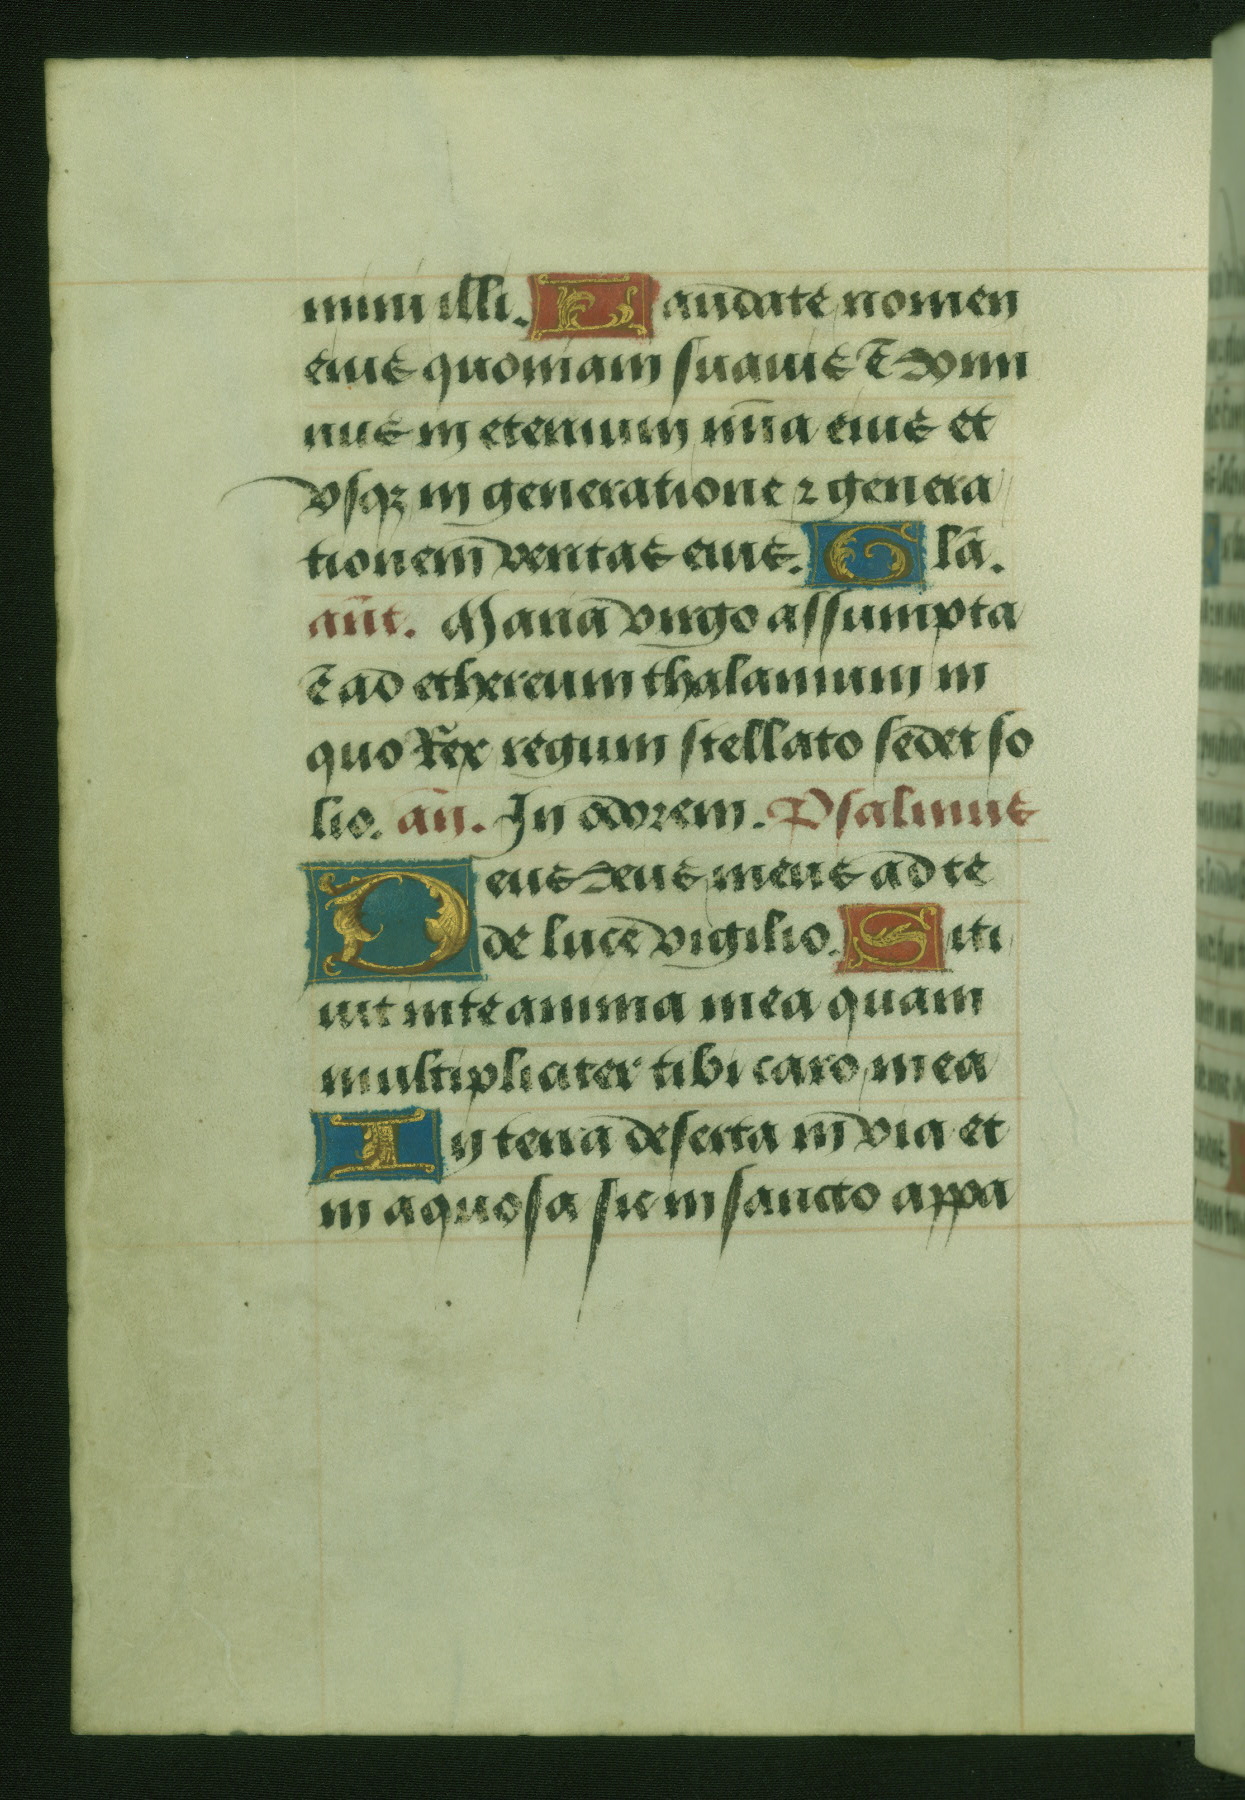 mini illi. Laudate nomen
eius quoniam suauis ē domi
nus in eternum mīa eius et
vsqꝫ in generatione ⁊ genera
tionem veritas eius. Glā.
añt. Maria virgo assumpta
ē ad ethereum thalamum in
quo Rex regum stellato sedet so
lio. añ. In odorem. Psalmus
Deus deus meus ad te
de luce vigilio. Siti
uit in te anima mea quam
multipliciter tibi caro mea
In terra deserta in via et
in aquosa sic in sancto appa